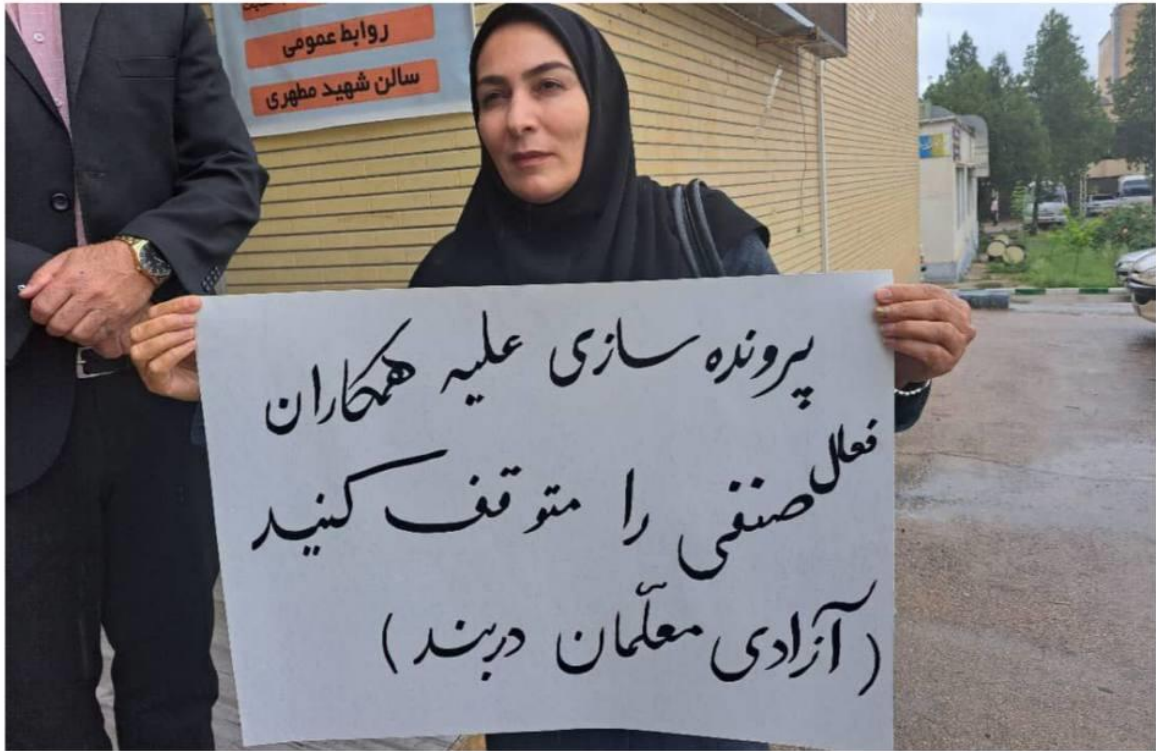 روابط عمومی
سالن شهید مطهری
پرونده سازی علیه همکاران
فعال صنفی را متوقف کنید
(آزادی معلّمان دربند)